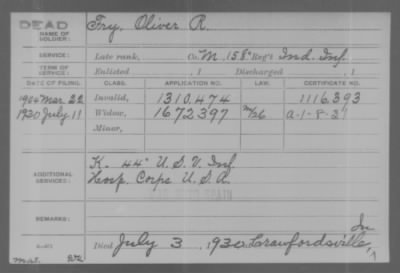 DEAD
NAME OF SOLDIER: Fry, Oliver R.
SERVICE: Late rank, Co. M, 158" Reg't Ind. Inf.
TERM OF SERVICE: Enlisted , 1 Discharged , 1
DATE OF FILING. CLASS. APPLICATION NO. LAW. CERTIFICATE NO.
1904 Mar. 22 Invalid, 1310.474 1116.393
1930 July 11 Widow, 1672397 A-1-8-31
Minor,
ADDITIONAL SERVICES: K- 44" U.S.V. Inf.
Hosp. Corps U.S.A.
WAR WITH SPAIN
REMARKS: In
Died July 3, 1930, Crawfordsville,